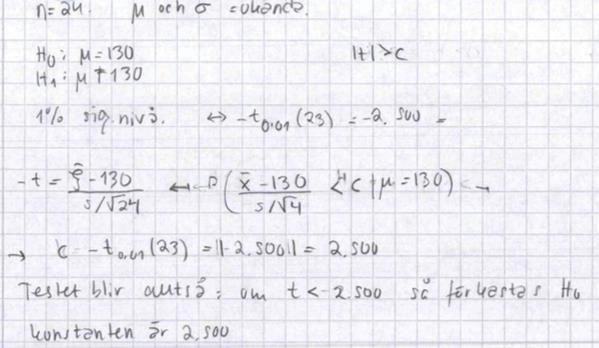 n=24. μ och σ okända.
H₀: μ=130 |t|>c
H₁: μ ≠ 130
1% sig.nivå. ↔ -t₀,₀₁(23) = -2.500 =
-t = (ξ̄ - 130)/(s/√24) ← P( (x̄ - 130)/(s/√4) < "c | μ=130)
→ c = -t₀,₀₁(23) = ||-2.500|| = 2.500
Testet blir alltså: om t < -2.500 så förkastas H₀
konstanten är 2,500